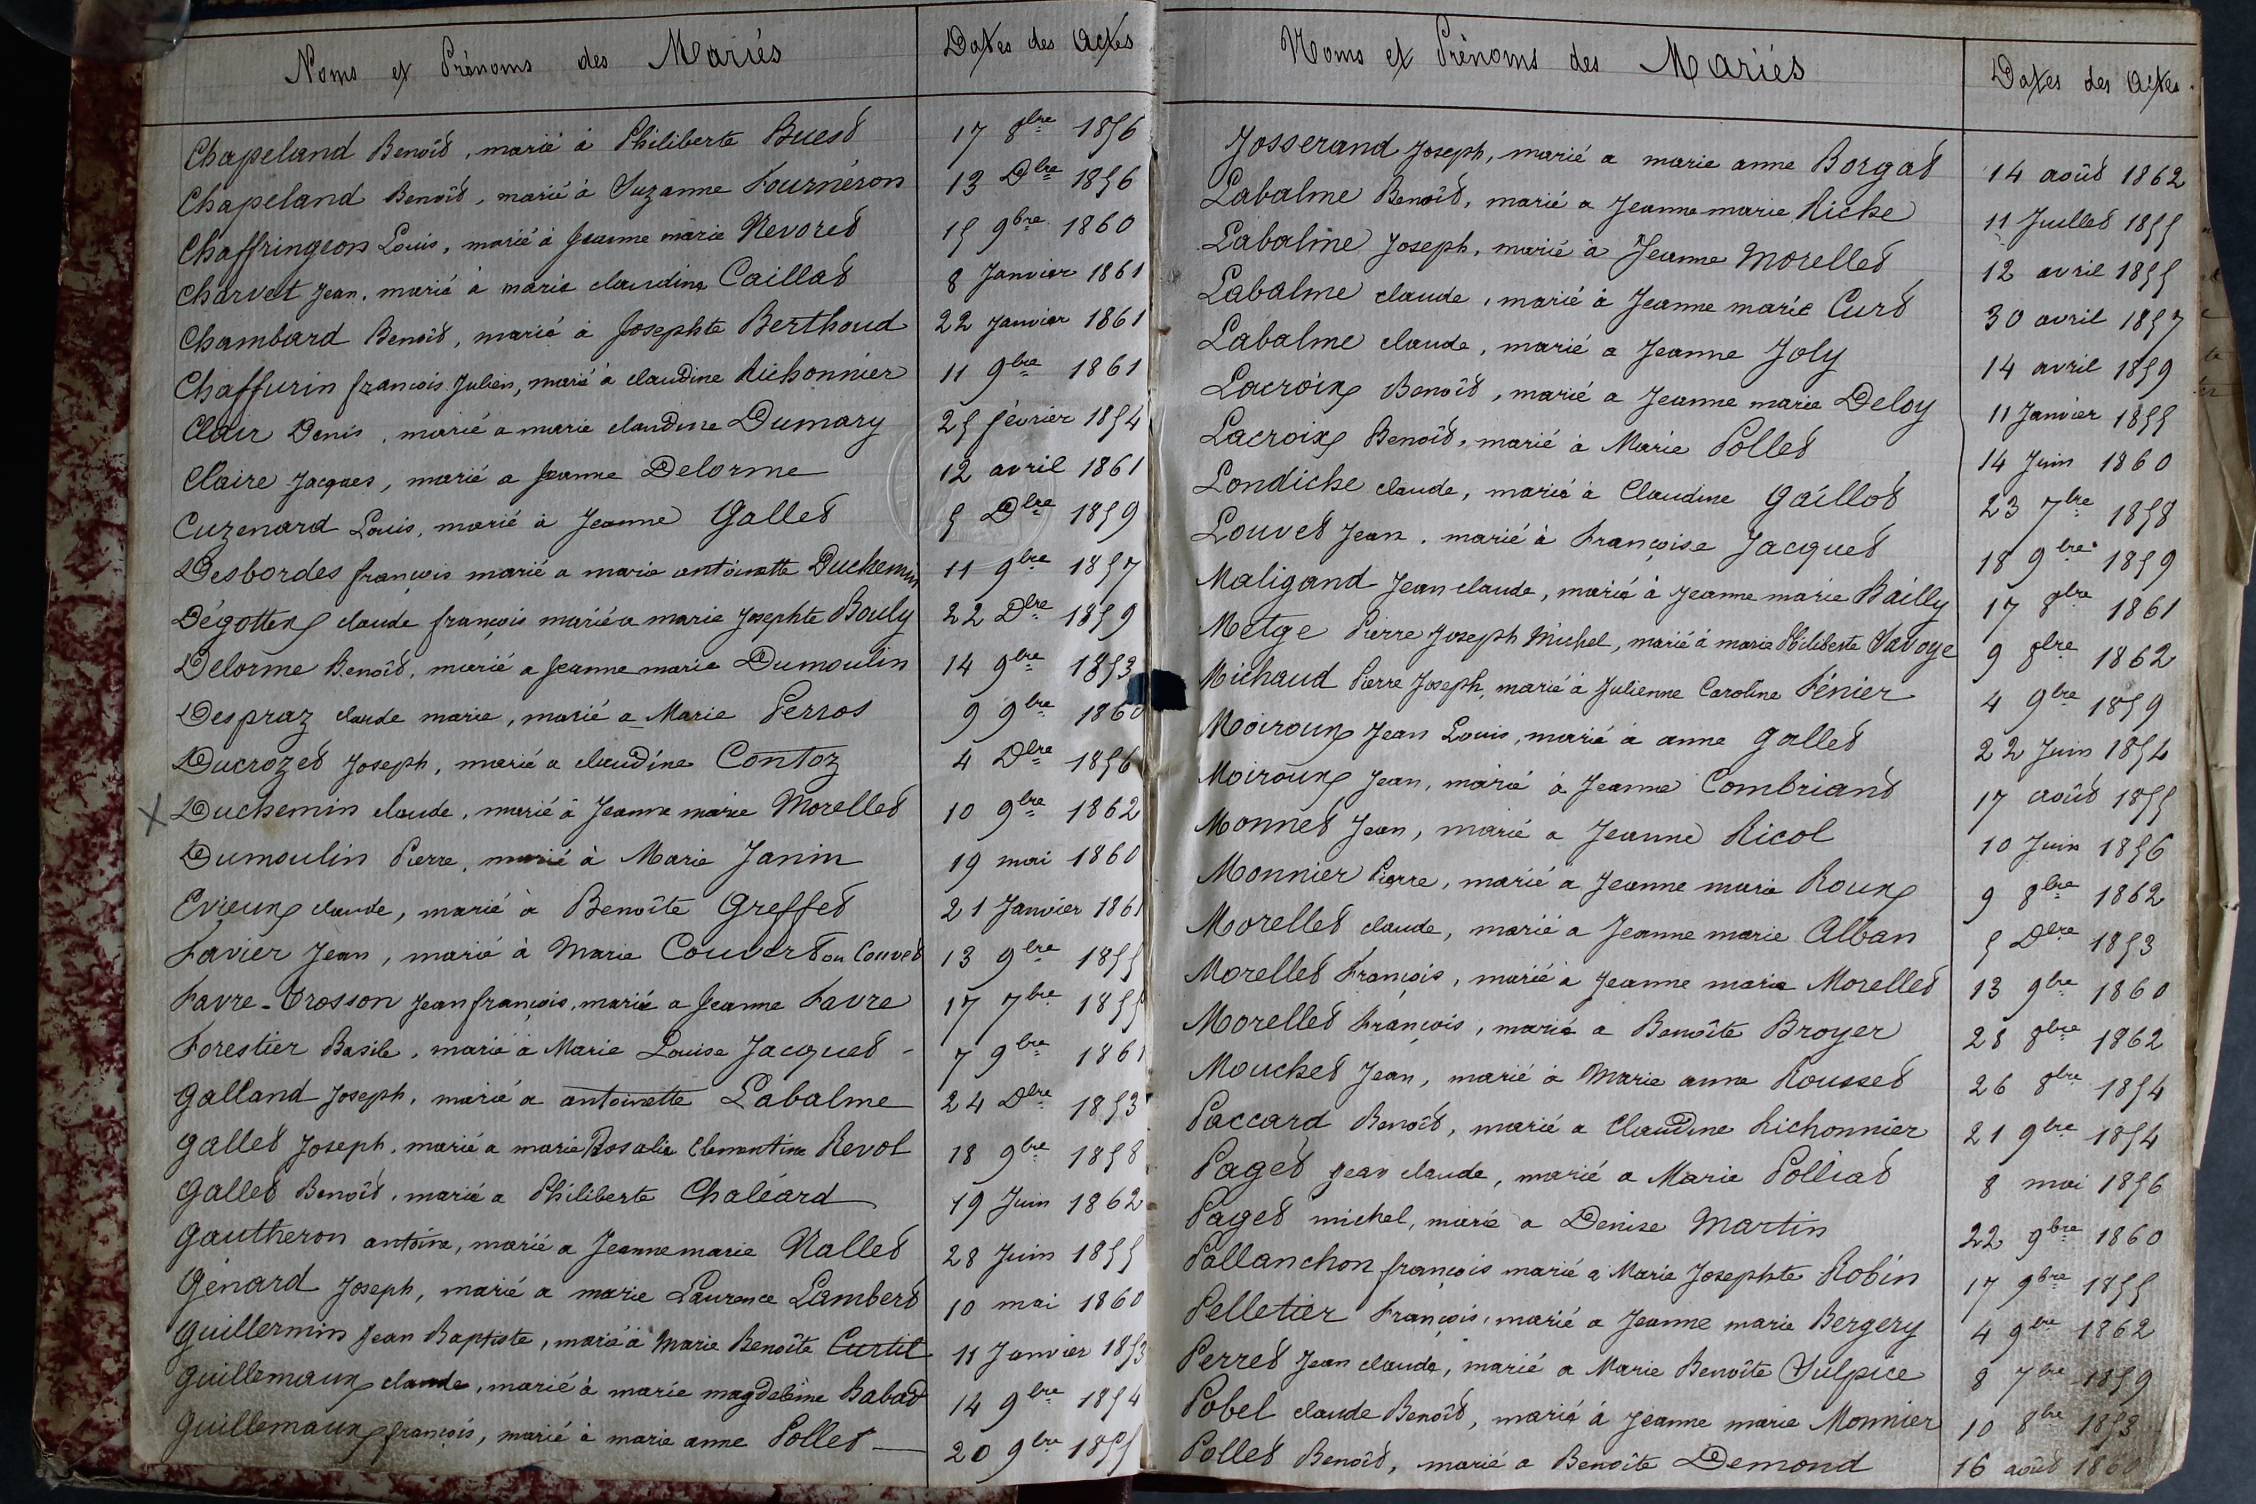 Noms et Prénoms des Mariés
Dates des Actes
Chapeland Benoît, marié à Philiberte Buest 17 8bre 1856
Chapeland Benoît, marié à Suzanne Fournéron 13 Dbre 1856
Chaffringeon Louis, marié à Jeanne marie Nevoret 15 9bre 1860
Charvet Jean, marié à marie claudine Caillat 8 Janvier 1861
Chambard Benoît, marié à Josephte Berthoud 22 Janvier 1861
Chaffurin françois Julien, marié à claudine Richonnier 11 9bre 1861
Clair Denis, marié a marie claudine Dumary 25 février 1854
Claire Jacques, marié a Jeanne Delorme 12 avril 1861
Cuzenard Louis, marié à Jeanne Gallet 5 Dbre 1859
Desbordes françois marié a marie antoinette Duchemin 11 9bre 1857
Dégottex claude françois marié a marie Josephte Bouly 22 Dbre 1859
Delorme Benoît, marié a Jeanne marie Dumoulin 14 9bre 1853
Despraz claude marie, marié a Marie Perros 9 9bre 1860
Ducrozet Joseph, marié a claudine Contoz 4 Dbre 1856
X Duchemin claude, marié à Jeanne marie Morellet 10 9bre 1862
Dumoulin Pierre, marié à Marie Janin 19 mai 1860
Evieux claude, marié à Benoîte Greffet 21 Janvier 1861
Favier Jean, marié à Marie Couvert ou Couvet 13 9bre 1855
Favre-Trosson Jean françois, marié a Jeanne Favre 17 7bre 1855
Forestier Basile, marié à Marie Louise Jacquet - 7 9bre 1861
Galland Joseph, marié a antoinette Labalme 24 Dbre 1853
Gallet Joseph, marié a marie Rosalie Clementine Revol 18 9bre 1858
Gallet Benoît, marié a Philiberte Chaléard 19 Juin 1862
Gautheron antoine, marié a Jeanne marie Nallet 28 Juin 1855
Génard Joseph, marié a marie Laurence Lambert 10 mai 1860
Guillermin Jean Baptiste, marié à Marie Benoîte Curtil 11 Janvier 1853
Guillemaux claude, marié à marie magdeleine Babad 14 9bre 1854
Guillemaux françois, marié à marie anne Pollet 20 9bre 1855
Noms et Prénoms des Mariés
Dates des Actes.
Josserand Joseph, marié a marie anne Borgat 14 août 1862
Labalme Benoît, marié a Jeanne marie Riche 11 Juillet 1855
Labalme Joseph, marié à Jeanne Morellet 12 avril 1855
Labalme claude, marié à Jeanne marie Curt 30 avril 1857
Labalme claude, marié a Jeanne Joly 14 avril 1859
Lacroix Benoît, marié a Jeanne marie Deloy 11 Janvier 1855
Lacroix Benoît, marié à Marie Pollet 14 Juin 1860
Londiche claude, marié à Claudine Gaillot 23 7bre 1858
Louvet Jean, marié à Françoise Jacquet 18 9bre 1859
Maligand Jean claude, marié à Jeanne marie Bailly 17 8bre 1861
Metge Pierre Joseph Michel, marié à marie Philiberte Savoye 9 8bre 1862
Michaud Pierre Joseph, marié à Julienne Caroline Fénier 4 9bre 1859
Moiroux Jean Louis, marié à anne Gallet 22 Juin 1854
Moiroux Jean, marié à Jeanne Combriant 17 août 1855
Monnet Jean, marié a Jeanne Ricol 10 Juin 1856
Monnier Pierre, marié a Jeanne marie Roux 9 8bre 1862
Morellet claude, marié a Jeanne marie Alban 5 Dbre 1853
Morellet François, marié à Jeanne marie Morellet 13 9bre 1860
Morellet François, marié a Benoîte Broyer 28 8bre 1862
Mouchet Jean, marié à Marie anne Rousset 26 8bre 1854
Paccard Benoît, marié a Claudine Richonnier 21 9bre 1854
Paget Jean claude, marié a Marie Polliat 8 mai 1856
Paget michel, marié a Denise Martin 22 9bre 1860
Pallanchon françois marié à Marie Josephte Robin 17 9bre 1855
Pelletier François, marié a Jeanne marie Bergery 4 9bre 1862
Perret Jean claude, marié a Marie Benoîte Sulpice 8 7bre 1859
Pobel claude Benoît, marié à Jeanne marie Monnier 10 8bre 1853
Pollet Benoît, marié a Benoîte Demond 16 août 1860